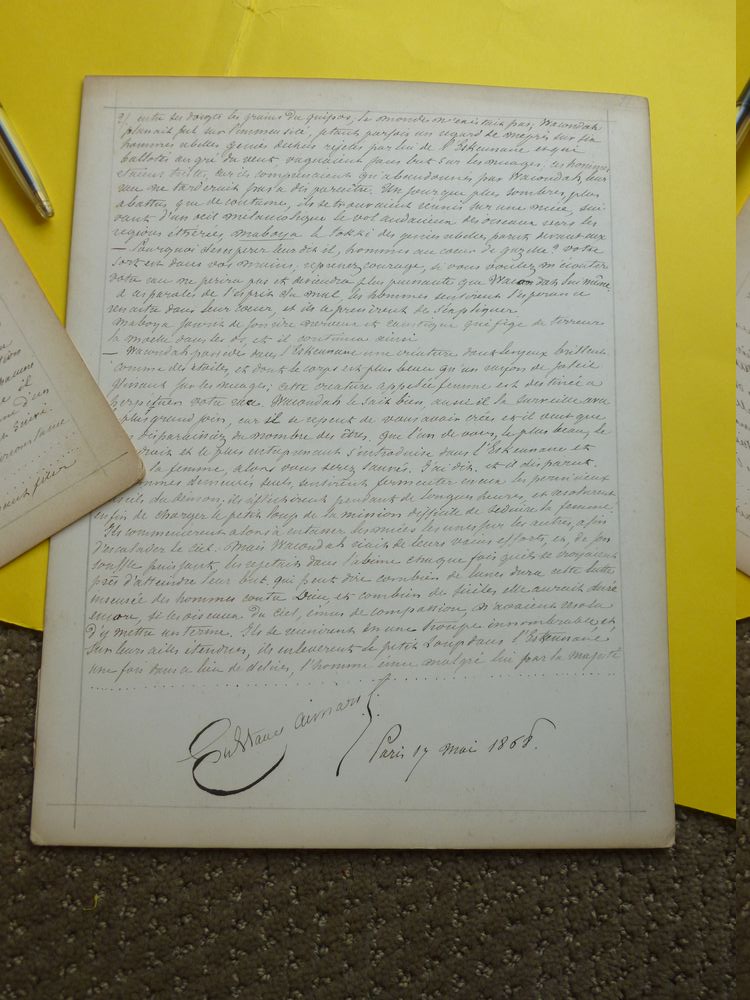 2/ entre ses doigts les grains du quipos, le monde n'existait pas, Wacondah
planait seul sur l'immensité, jetant parfois un regard de mépris sur six
hommes rebelles genies déchus rejetés par lui de l'Eskennane et qui
ballotés au gré du vent vaguaient sans but sur les nuages, ces hommes
étaient tristes, car ils comprenaient qu'abandonnés par Wacondah, leur
race ne tarderait pas à disparaître. Un jour que plus sombres, plus
abattus que de coutume, ils se trouvaient réunis sur une nuée, sui-
vant d'un œil mélancolique le vol audacieux des oiseaux vers les
régions éthérées, maboya le tokki des genies rebelles parut devant eux
— Pourquoi désespérer leur dit il, hommes au cœur de gazelle? votre
sort est dans vos mains, reprenez courage, si vous voulez m'écouter
votre race ne perira pas et deviendra plus puissante que Wacondah lui même.
à ces paroles de l'esprit du mal, les hommes sentirent l'esperance
renaitre dans leur cœur, et ils le prièrent de s'expliquer.
maboya sourit de ce rire nerveux et caustique qui fige de terreur
la moelle dans les os, et il continua ainsi
— Wacondah possède dans l'Eskennane une créature dont les yeux brillent
comme des étoiles, et dont le corps est plus beau qu'un rayon de soleil
glissant sur les nuages; cette creature appelée femme est destinée à
perpétuer votre race. Wacondah le sait bien, aussi il la surveille avec
plus grand soin, car il se repent de vous avoir créés et il veut que
disparaissiez du nombre des êtres. que l'un de vous, le plus beau, le
adroit et le plus entreprenant s'introduise dans l'Eskennane et
la femme, alors vous serez sauvés. J'ai dit. et il disparut.
hommes demeurés seuls, sentirent fermenter en eux les pernicieux
conseils du démon, ils réfléchirent pendant de longues heures, et résolurent
enfin de charger le petit loup de la mission difficile de séduire la femme.
Ils commencèrent alors à entasser les nuées les unes sur les autres, afin
d'escalader le ciel. Mais Wacondah riait de leurs vains efforts, et, de son
souffle puissant, les rejetait dans l'abîme chaque fois qu'ils se croyaient
près d'atteindre leur but, qui peut dire combien de lunes dura cette lutte
insensée des hommes contre Dieu, et combien de siècles elle aurait duré
encore, si les oiseaux du ciel, émus de compassion, n'avaient résolu
d'y mettre un terme. Ils se réunirent en une troupe innombrable, et,
sur leurs ailes étendues, ils enlevèrent le petit Loup dans l'Eskennane
une fois dans ce lieu de délices, l'homme ému malgré lui par la majesté
Gustave aimard
Paris 17 mai 1868.